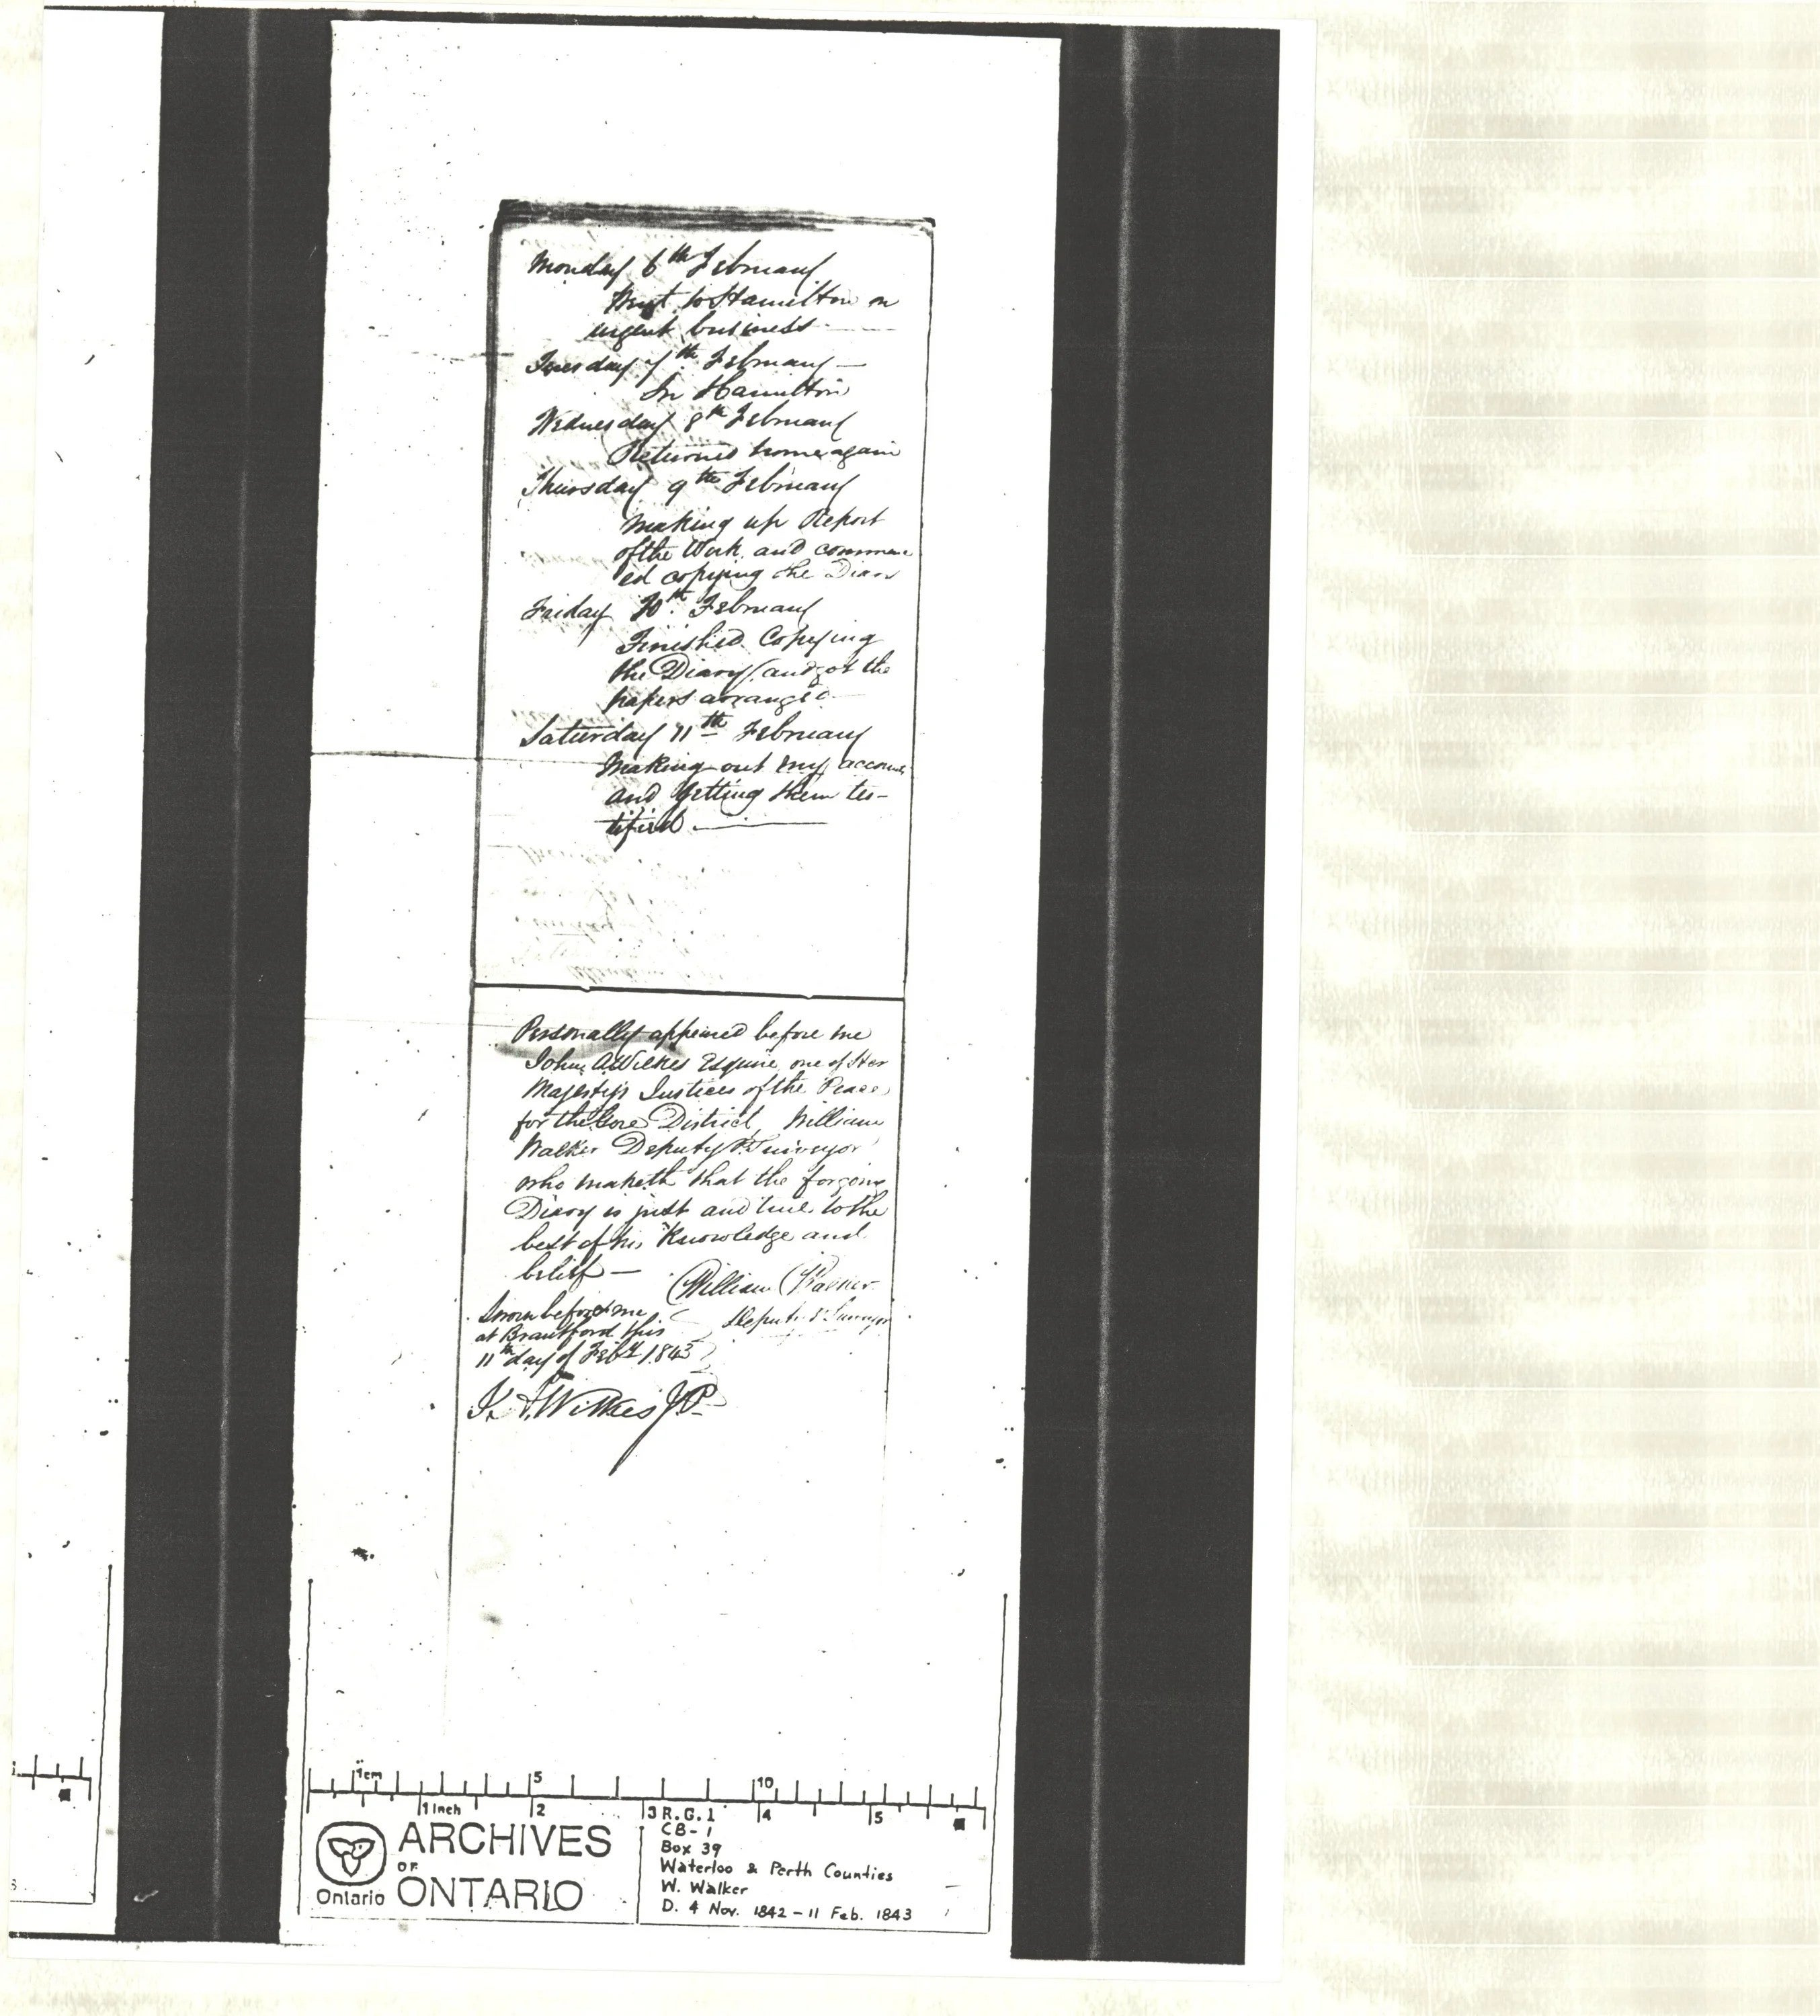 Monday 6th February
Went to Hamilton on
urgent business
Tuesday 7th February
In Hamilton
Wednesday 8th February
Returned home again
Thursday 9th February
Making up Report
of the Work and commenc
ed copying the Diary
Friday 10th February
Finished Copying
the Diary and got the
papers arranged
Saturday 11th February
Making out my accounts
and getting them tes-
tified
Personally appeared before me
John A Wilkes Esquire one of Her
Majesty's Justices of the Peace
for the Gore District, William
Walker Deputy P. Surveyor
who maketh that the forgoing
Diary is just and true to the
best of his Knowledge and
belief —
William Walker
Deputy P. Surveyor
Sworn before me
at Brantford this
11th day of Feby 1843
J. A. Wilkes JP
1cm 5 10
1 inch 2 3 4 5
ARCHIVES
OF
ONTARIO
Ontario
R.G. 1
CB-1
Box 39
Waterloo & Perth Counties
W. Walker
D. 4 Nov. 1842 - 11 Feb. 1843